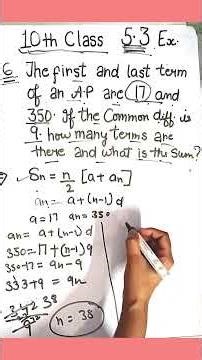 10th Class 5.3 Ex.
6 The first and last term
of an A.P are 17 and
350. If the Common diff. is
9. how many terms are
there and what is the Sum?
Sn = n/2 [a + an]
an = a + (n-1) d
a = 17 an = 350
an = a + (n-1) d
350 = 17 + (n-1) 9
350 - 17 = 9n - 9
333 + 9 = 9n
342 38
n = 38